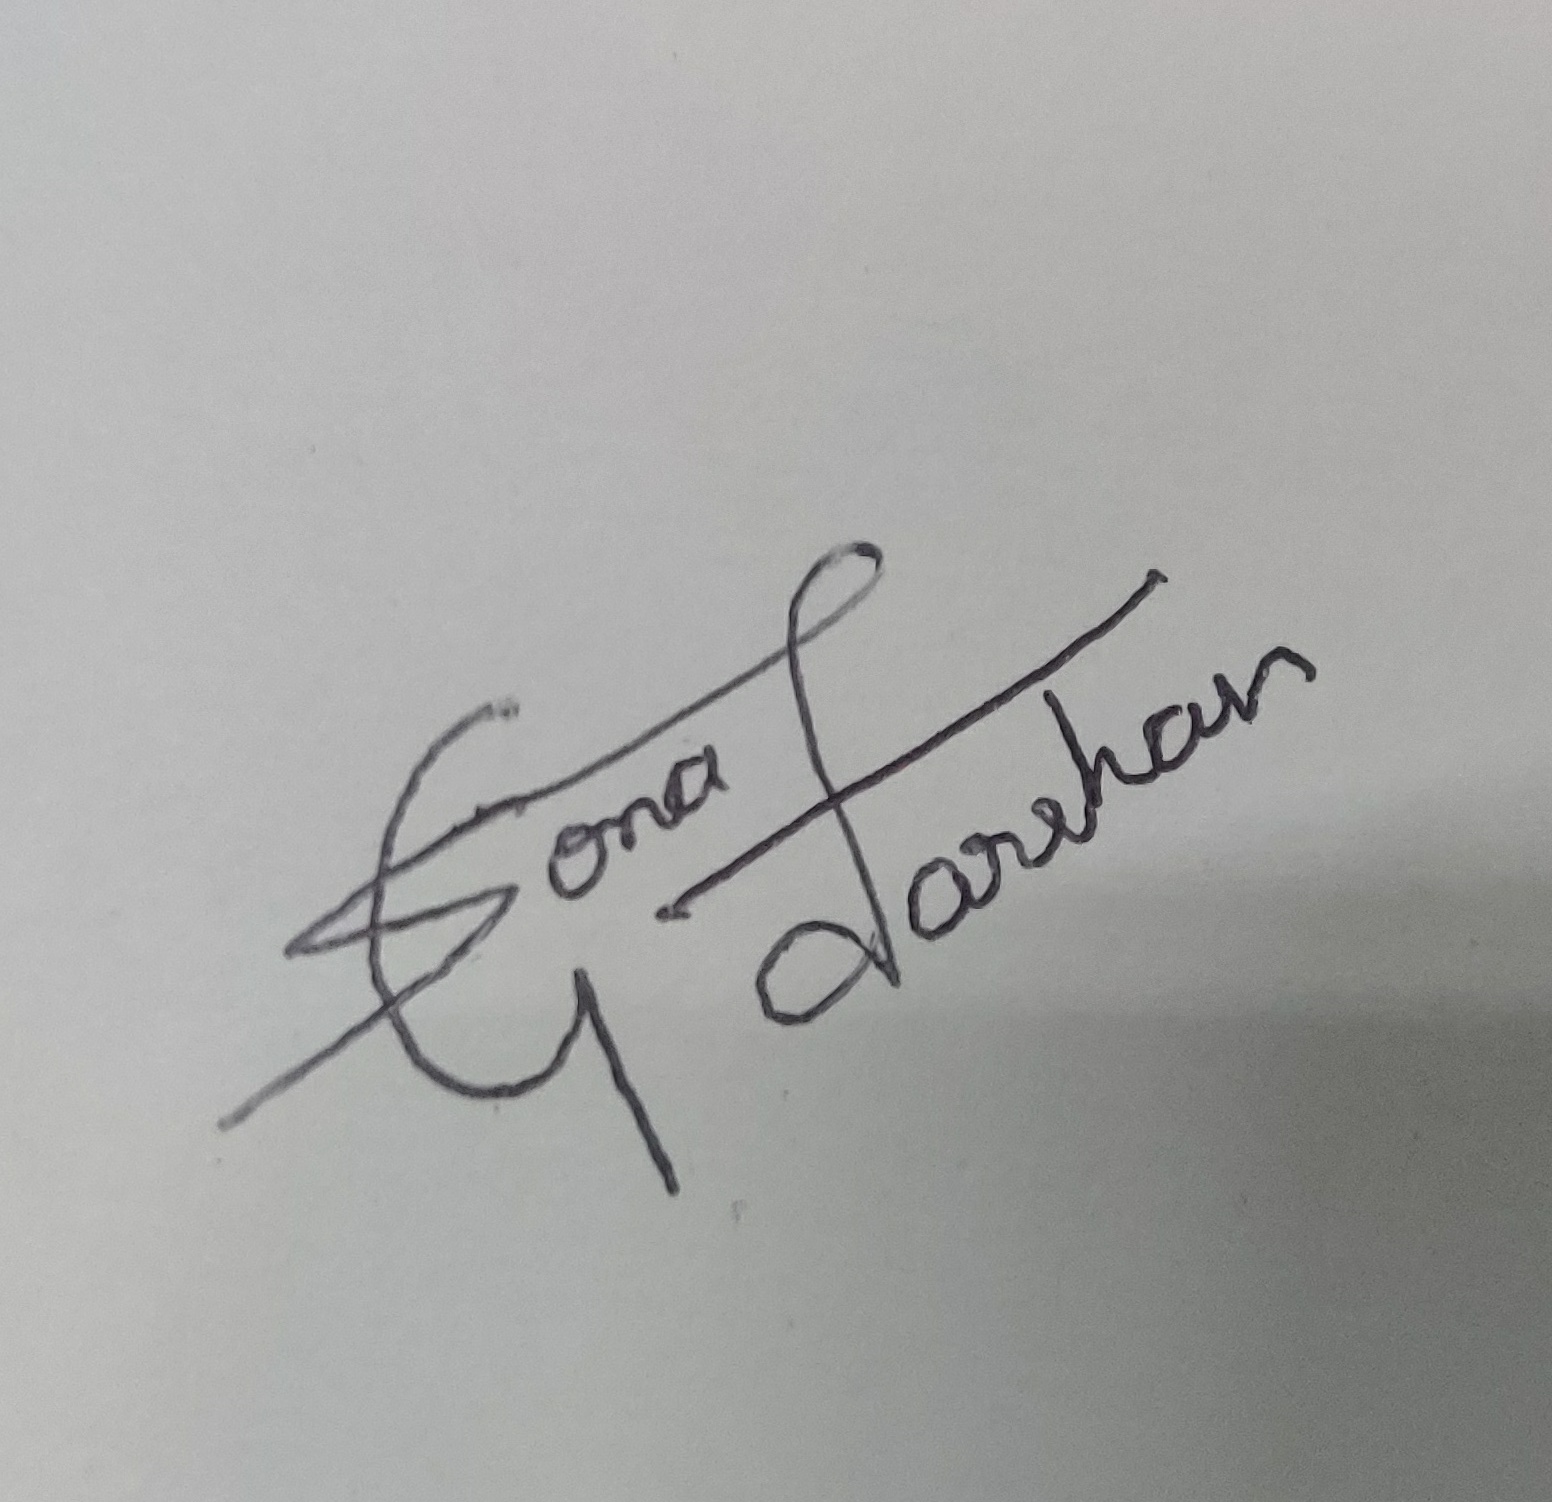 Sona
Darshan